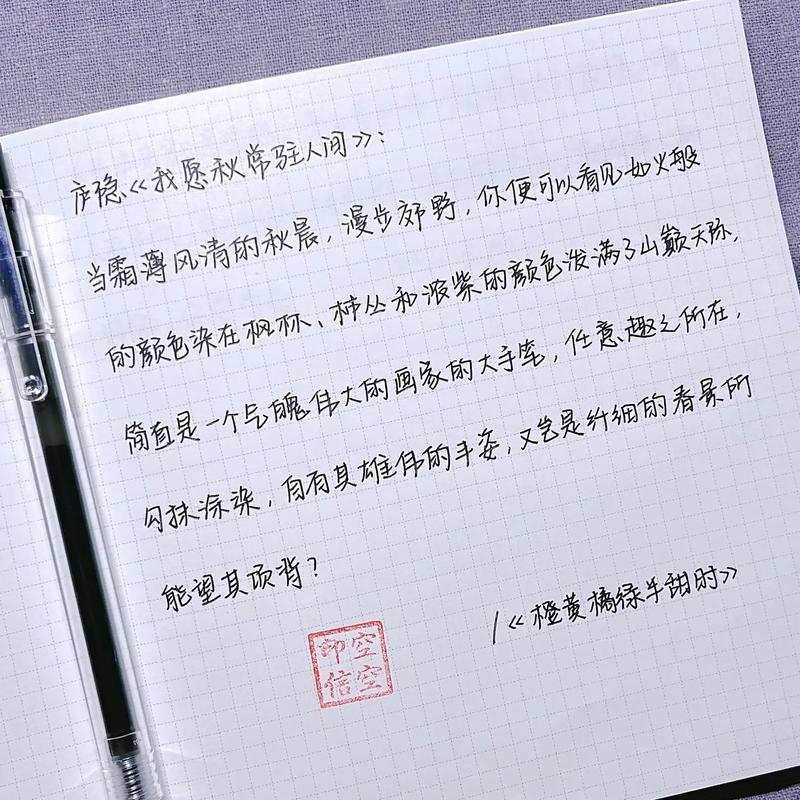 庐隐《我愿秋常驻人间》：
当霜薄风清的秋晨，漫步郊野，你便可以看见如火般
的颜色染在枫林、柿丛和浓紫的颜色泼满了山巅天际，
简直是一个气魄伟大的画家的大手笔，任意趣之所在，
勾抹涂染，自有其雄伟的丰姿，又岂是纤细的春景所
能望其项背？
/《橙黄橘绿半甜时》
空空
印信